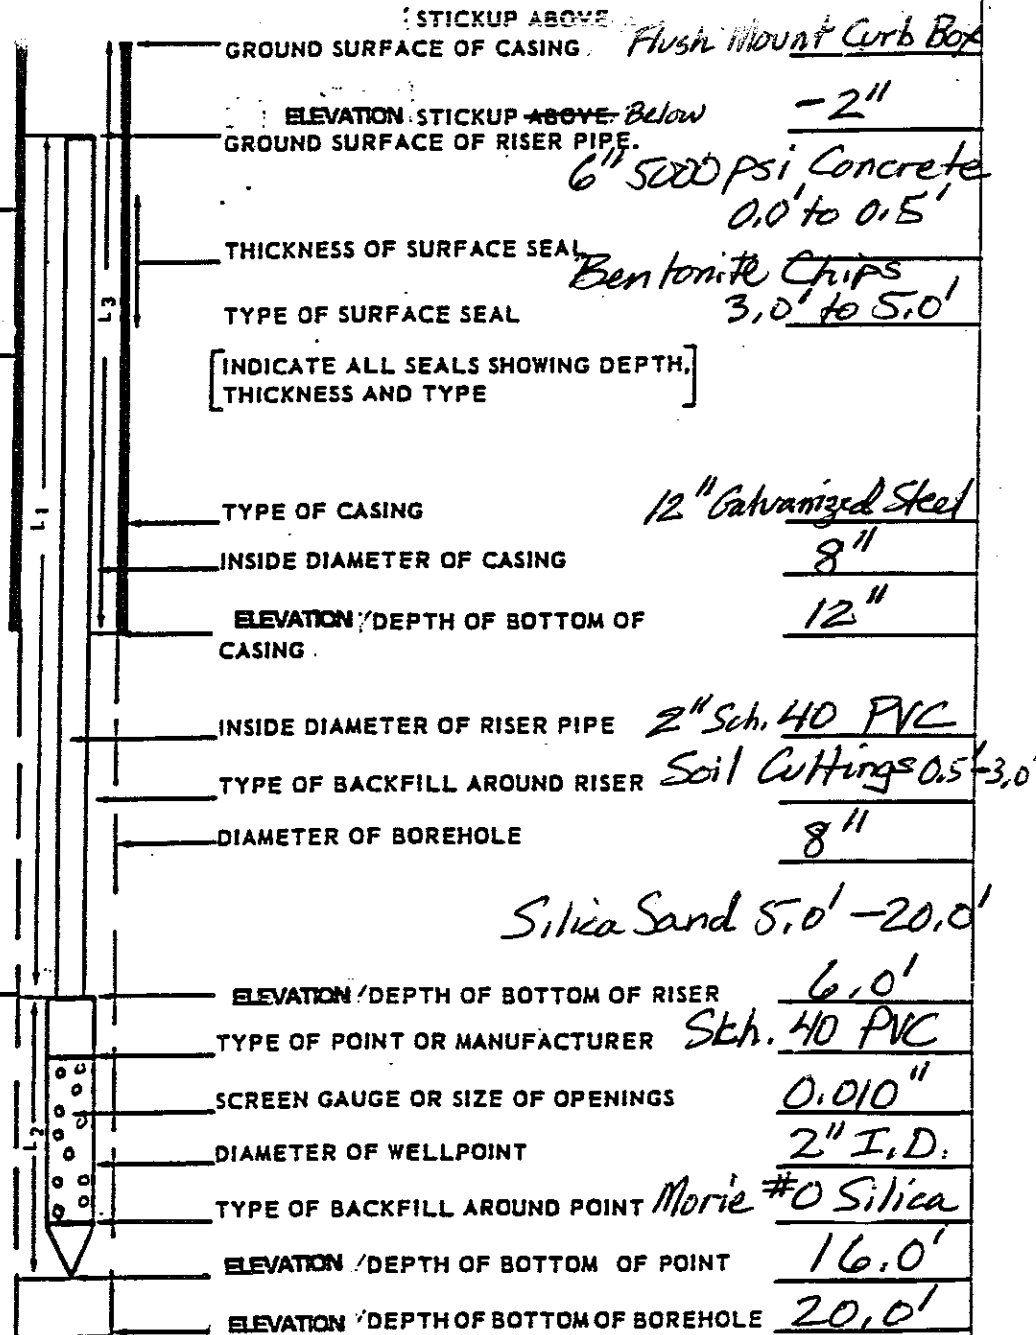 STICKUP ABOVE
GROUND SURFACE OF CASING. Flush Mount Curb Box
ELEVATION STICKUP ABOVE Below -2"
GROUND SURFACE OF RISER PIPE.
6" 5000 psi Concrete
0.0' to 0.5'
THICKNESS OF SURFACE SEAL
Bentonite Chips
TYPE OF SURFACE SEAL 3.0' to 5.0'
[INDICATE ALL SEALS SHOWING DEPTH,
THICKNESS AND TYPE]
L3
L1
TYPE OF CASING 12" Galvanized Steel
INSIDE DIAMETER OF CASING 8"
ELEVATION / DEPTH OF BOTTOM OF 12"
CASING.
INSIDE DIAMETER OF RISER PIPE 2" Sch. 40 PVC
TYPE OF BACKFILL AROUND RISER Soil Cuttings 0.5'-3.0'
DIAMETER OF BOREHOLE 8"
Silica Sand 5.0' - 20.0'
ELEVATION / DEPTH OF BOTTOM OF RISER 6.0'
TYPE OF POINT OR MANUFACTURER Sch. 40 PVC
SCREEN GAUGE OR SIZE OF OPENINGS 0.010"
L2
DIAMETER OF WELLPOINT 2" I.D.
TYPE OF BACKFILL AROUND POINT Morie #0 Silica
ELEVATION / DEPTH OF BOTTOM OF POINT 16.0'
ELEVATION / DEPTH OF BOTTOM OF BOREHOLE 20.0'